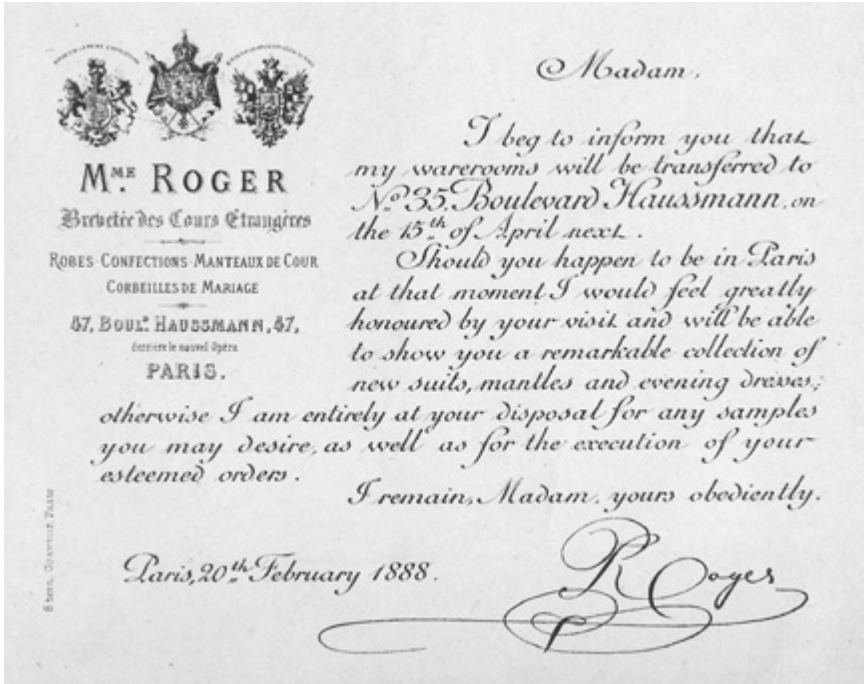 Mᴹᴱ ROGER
Brevetée des Cours Etrangères
ROBES-CONFECTIONS-MANTEAUX DE COUR
CORBEILLES DE MARIAGE
47, BOULᴰ HAUSSMANN, 47,
derrière le nouvel Opéra
PARIS.
Madam,
I beg to inform you that
my warerooms will be transferred to
Nº 35. Boulevard Haussmann, on
the 15th of April next.
Should you happen to be in Paris
at that moment I would feel greatly
honoured by your visit and will be able
to show you a remarkable collection of
new suits, mantles and evening dresses;
otherwise I am entirely at your disposal for any samples
you may desire, as well as for the execution of your
esteemed orders.
I remain, Madam, yours obediently.
Paris, 20th February 1888.
R Roger
Stern, Graveur, Paris